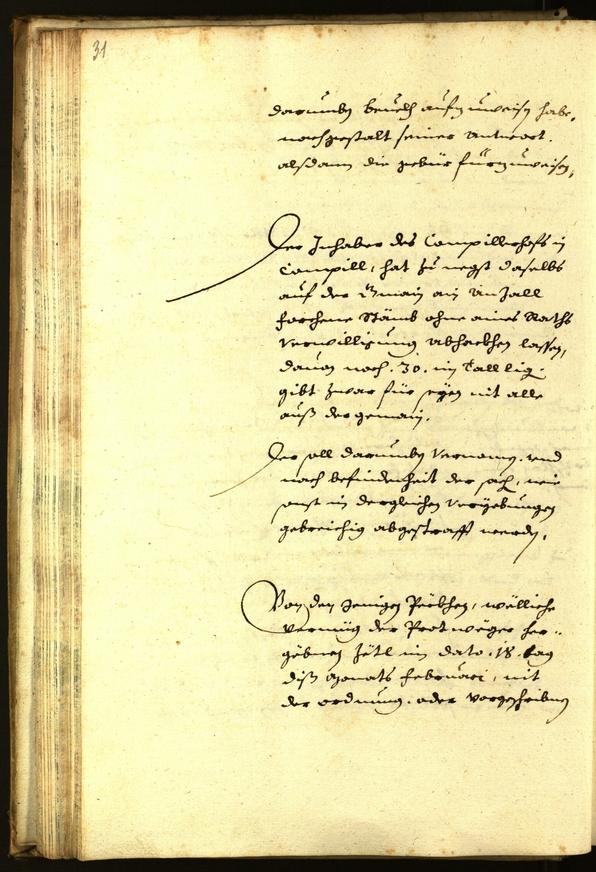 31
darumben beuelch aufzuweisen habe,
nachgestalt seiner Antwort.
alsdann die gebür fürzuweisen,
Der Inhaber des Campillerhofs in
Campill, hat zu negst daselbs
auf der gmain ain Anzall
forchene Stämb ohne aines Raths
verwilligung abhackhen lassen,
dauon noch .30. im Tall lig.
gibt zwar für seyen nit alle
auß der gemain.
Der soll darumben vernomen. vnd
nach befindenheit der sach, wie
sonst in dergleichen vergebungen
gebreichig abgestrafft werden,
Von den Jenigen Peckhen, wölliche
vermüg der Protwäger her=
gebnen Zetl im dato .18. tag
diß Monats Februarj, mit
der ordnung. oder vorgeschribnen